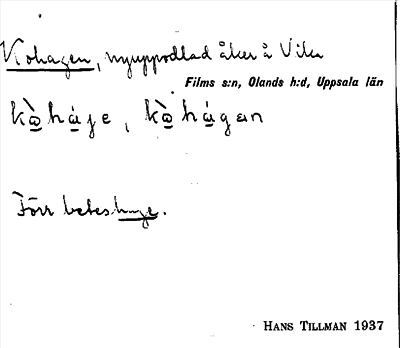 Kohagen, nyuppodlad åker å Viken
Films s:n, Olands h:d, Uppsala län
kò̱ háge, kò̱ hágen
Förr beteshage.
HANS TILLMAN 1937